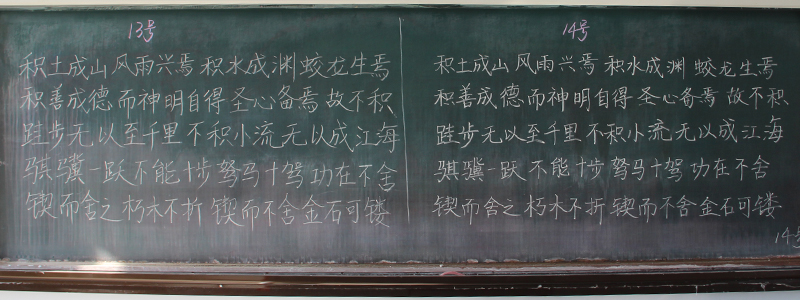 13号
积土成山风雨兴焉积水成渊蛟龙生焉
积善成德而神明自得圣心备焉故不积
跬步无以至千里不积小流无以成江海
骐骥一跃不能十步驽马十驾功在不舍
锲而舍之朽木不折锲而不舍金石可镂
14号
积土成山风雨兴焉积水成渊蛟龙生焉
积善成德而神明自得圣心备焉故不积
跬步无以至千里不积小流无以成江海
骐骥一跃不能十步驽马十驾功在不舍
锲而舍之朽木不折锲而不舍金石可镂
14号